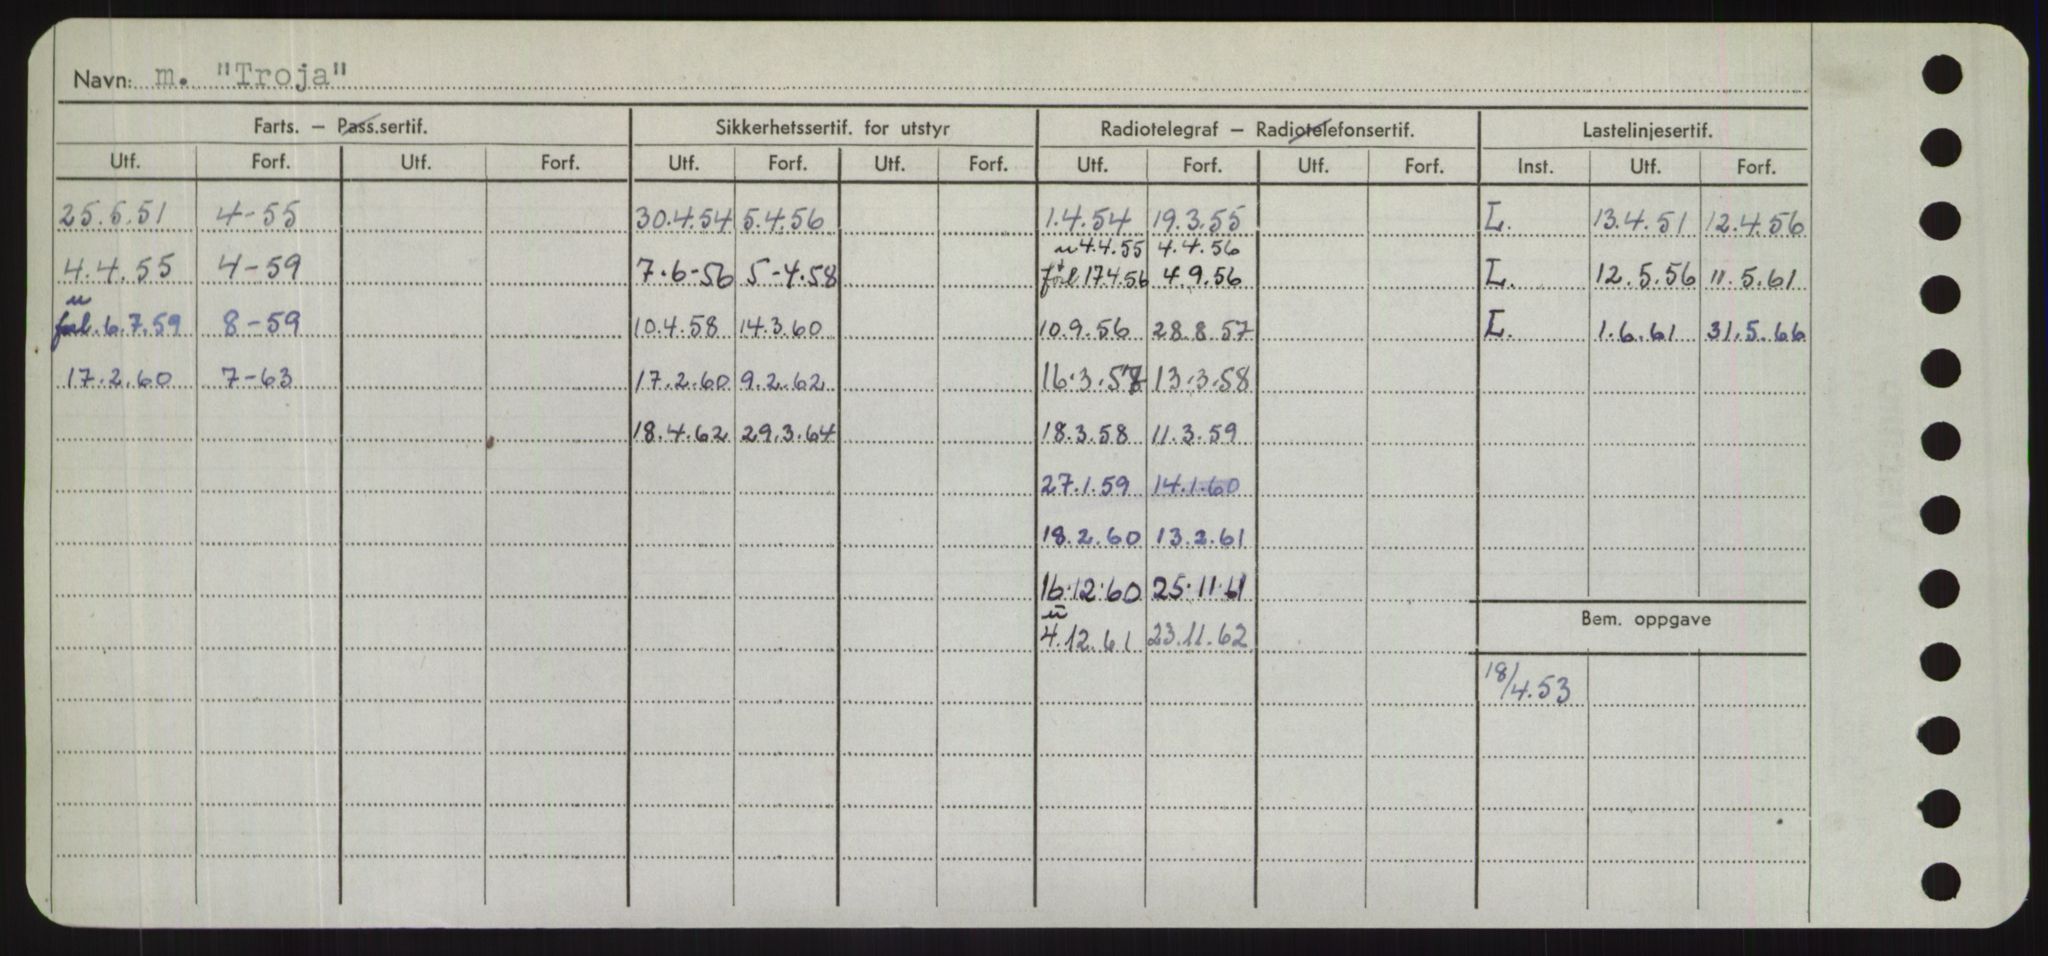 Navn: m. "Troja"
Farts. – Pass.sertif. Sikkerhetssertif. for utstyr Radiotelegraf – Radiotelefonsertif. Lastelinjesertif.
Utf. Forf. Utf. Forf. Utf. Forf. Utf. Forf. Utf. Forf. Utf. Forf. Inst. Utf. Forf.
25.5.51 4-55 30.4.54 5.4.56 1.4.54 19.3.55 L. 13.4.51 12.4.56
u 4.4.55 4.4.56
4.4.55 4-59 7.6-56 5-4.58 forl 17.4.56 4.9.56 L. 12.5.56 11.5.61
u
forl. 6.7.59 8-59 10.4.58 14.3.60 10.9.56 28.8.57 L. 1.6.61 31.5.66
17.2.60 7-63 17.2.60 9.2.62 16.3.57 13.3.58
18.4.62 29.3.64 18.3.58 11.3.59
27.1.59 14.1.60
18.2.60 13.2.61
16.12.60 25.11.61
u
4.12.61 23.11.62
Bem. oppgave
18/4.53